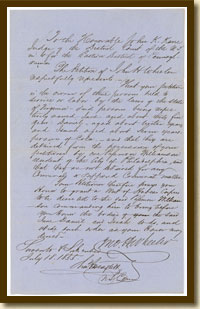 To the Honorable John K. Kane
Judge of the District Court of the U.S.
in & for the Eastern District of Pennsyl-
vania
The Petition of John H. Wheeler
respectfully represents
That your petitioner
is the owner of three persons held to
service or labor by the laws of the State
of Virginia
named Jane, aged about thirty five
years, Daniel, aged about twelve
and Isaiah aged about seven years
persons of color, and that they are
detained from the possession of your
Petitioner by one Passmore Williamson
resident of the City of Philadelphia and
that they are not detained for any
criminal or supposed criminal matter
Your Petitioner therefore prays your
Honor to grant a writ of Habeas Corpus
to be directed to the said Passmore William-
son commanding him to bring before
your Honor the bodies of the said
Jane, Daniel and Isaiah to do and
abide such order as your Honor may
direct
Jno H Wheeler
Sworn to & Subscribed
July 18. 1855